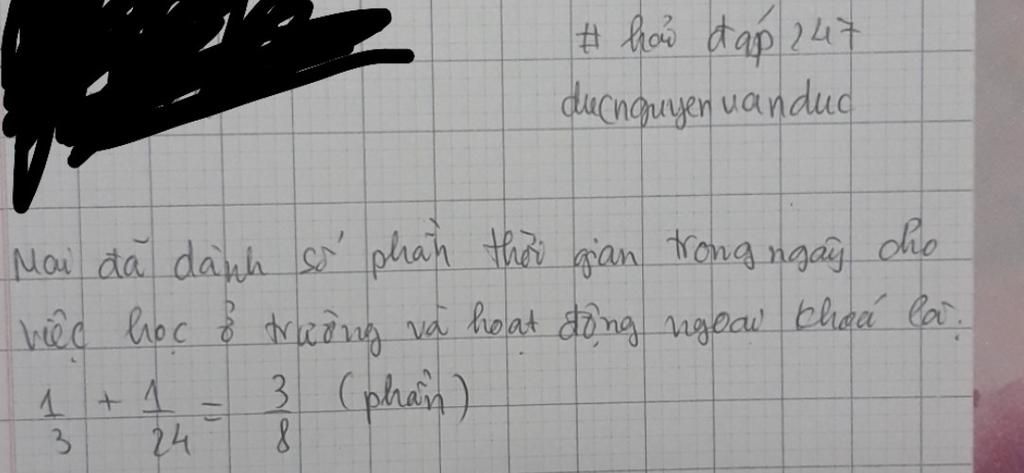 # hỏi đáp 247
ducnguyenvanduc
Mai đã dành số phần thời gian trong ngày cho
việc học ở trường và hoạt động ngoại khoá là:
1/3 + 1/24 = 3/8 (phần)